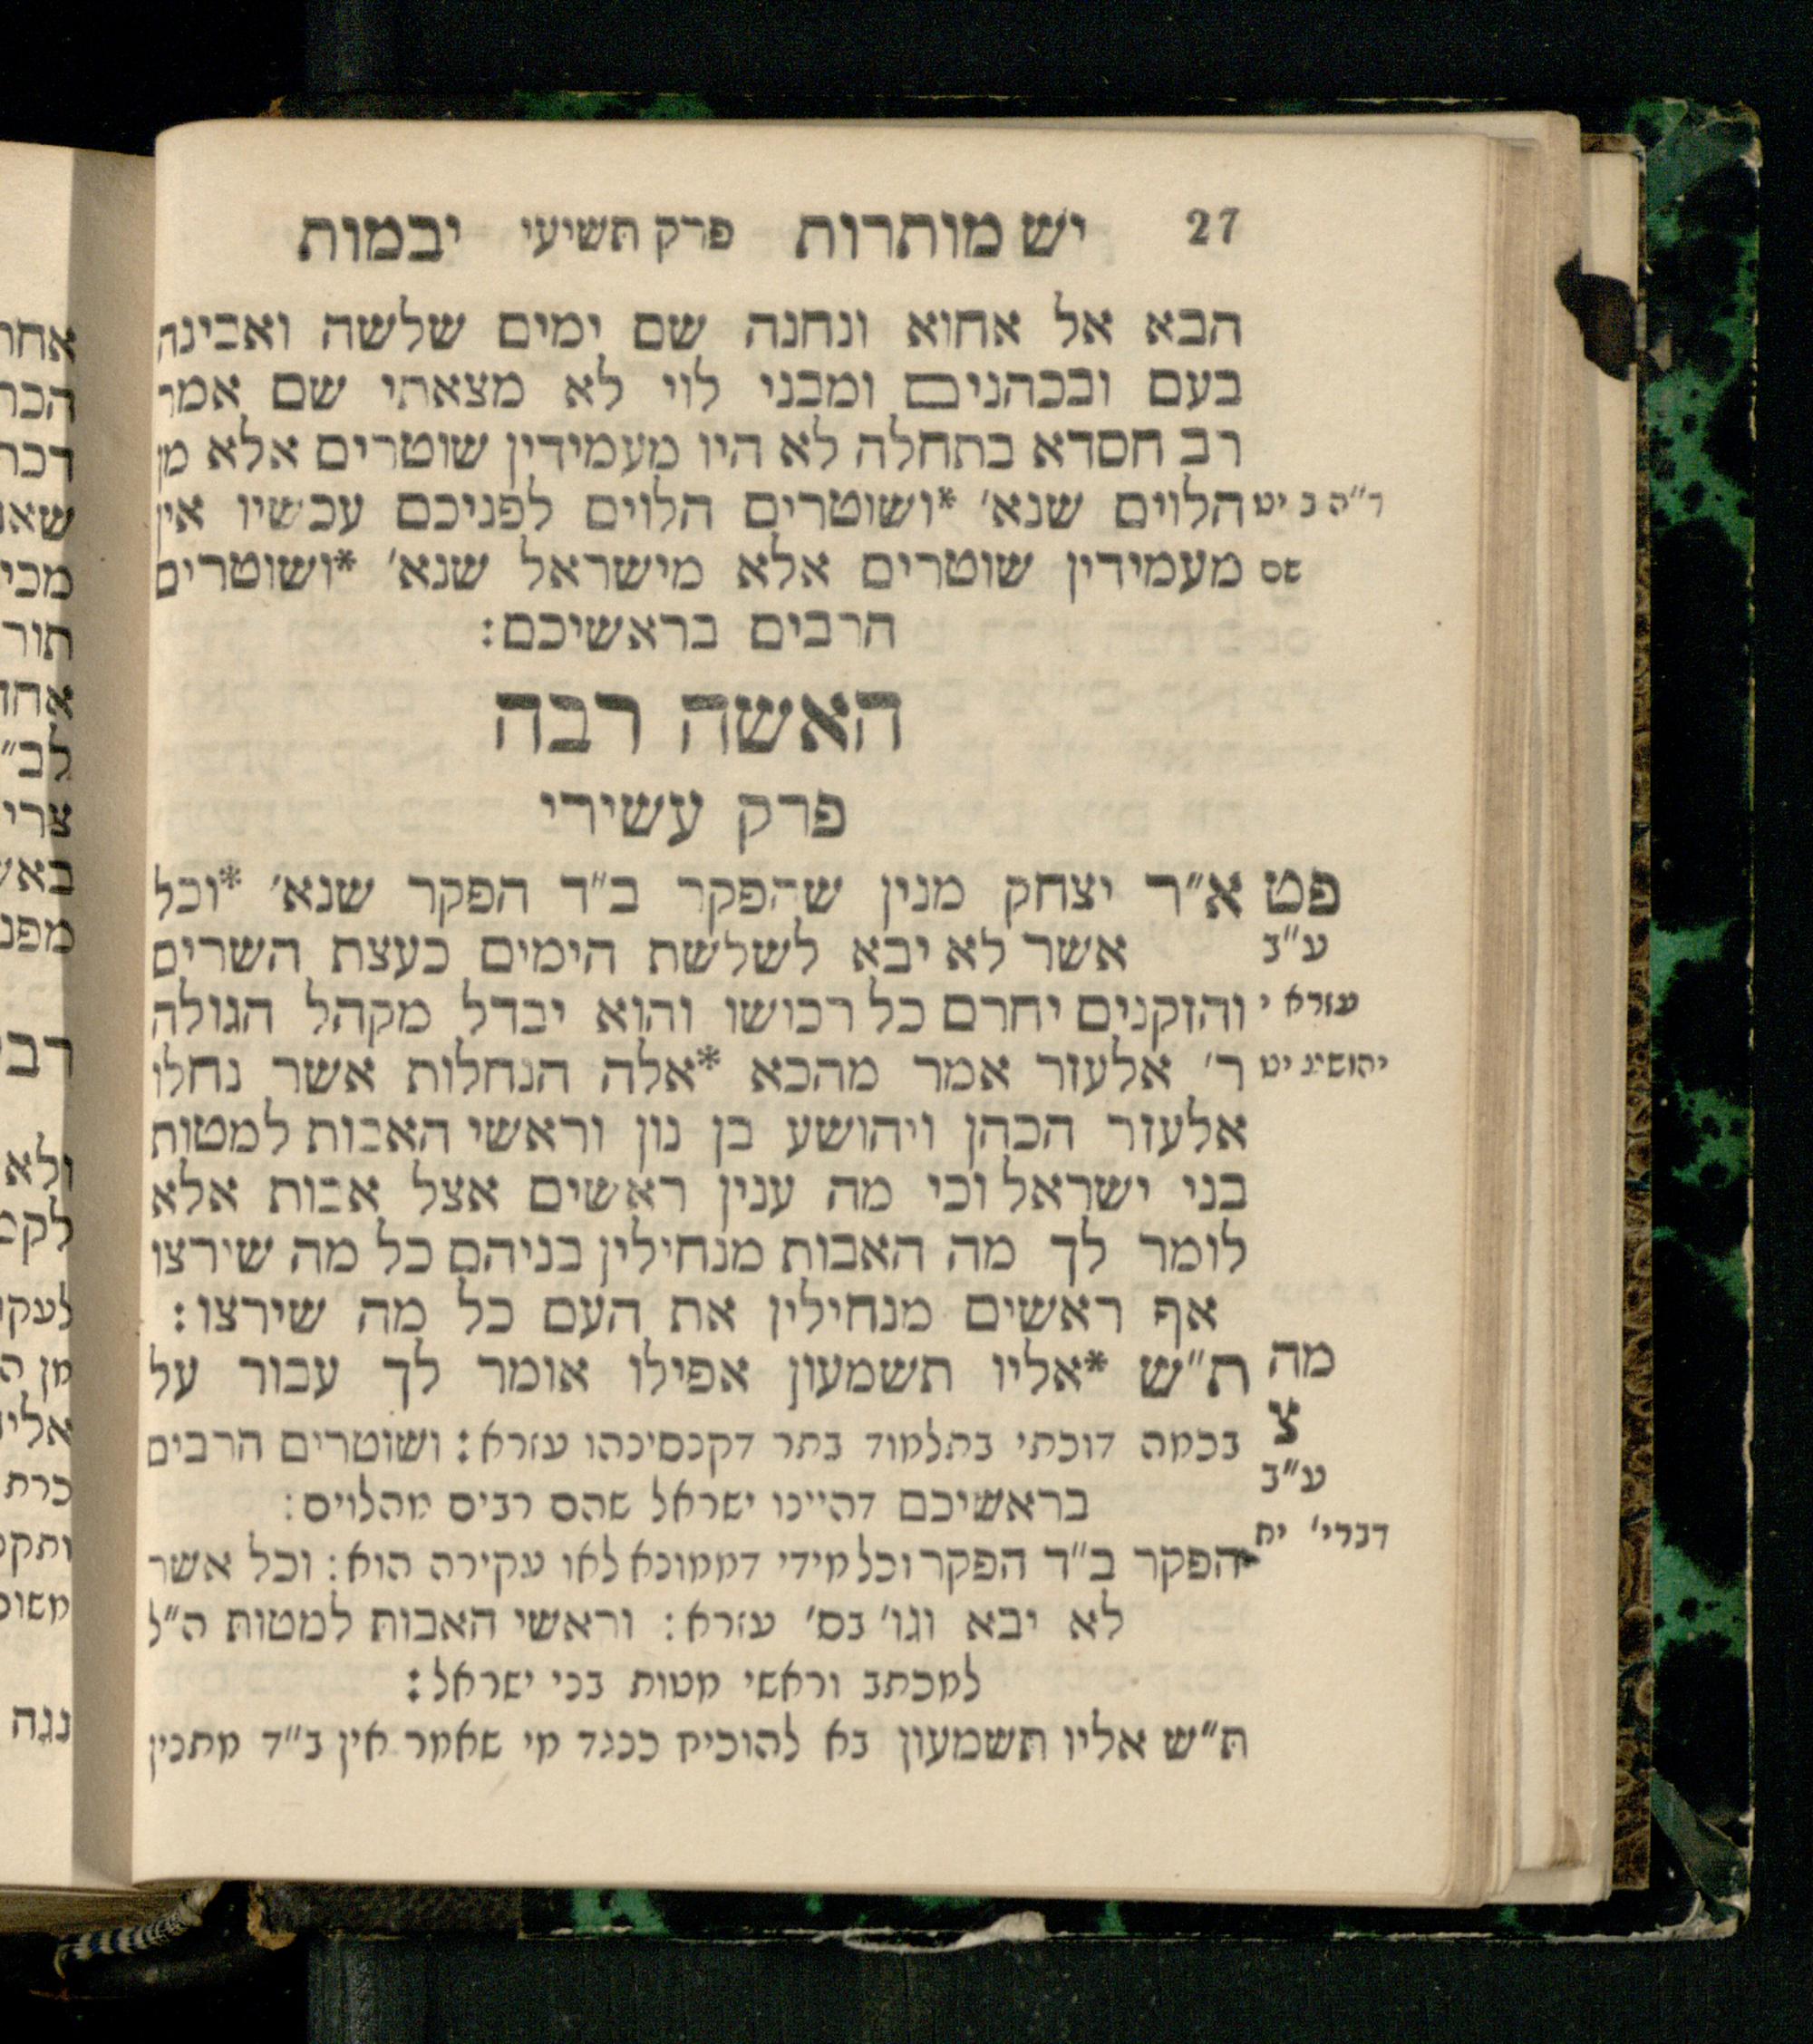 27 יש מותרות פרק תשיעי יבמות
הבא אל אחוא ונחנה שם ימים שלשה ואבינה
בעם ובכהנים ומבני לוי לא מצאתי שם אמר
רב חסדא בתחלה לא היו מעמידין שוטרים אלא מן
הלוים שנא׳ *ושוטרים הלוים לפניכם עכשיו אין
ד״ה ב יט
מעמידין שוטרים אלא מישראל שנא׳ *ושוטרים
שם
הרבים בראשיכם:
האשה רבה
פרק עשירי
פט
א״ר יצחק מנין שהפקר ב״ד הפקר שנא׳ *וכל
ע״ב
אשר לא יבא לשלשת הימים כעצת השרים
עזרא י
והזקנים יחרם כל רכושו והוא יבדל מקהל הגולה
יהושע יט
ר׳ אלעזר אמר מהכא *אלה הנחלות אשר נחלו
אלעזר הכהן ויהושע בן נון וראשי האבות למטות
בני ישראל וכי מה ענין ראשים אצל אבות אלא
לומר לך מה האבות מנחילין בניהם כל מה שירצו
אף ראשים מנחילין את העם כל מה שירצו:
מה
ת״ש *אליו תשמעון אפילו אומר לך עבור על
צ
ע״ב
דברי׳ יח
בכמה דוכתי בתלמוד בתר דקנסינהו עזרא: ושוטרים הרבים
בראשיכם דהיינו ישראל שהם רבים מהלוים:
הפקר ב״ד הפקר וכל מידי דממונא לאו עקירה הוא: וכל אשר
לא יבא וגו׳ בס׳ עזרא: וראשי האבות למטות ה״ל
למכתב וראשי מטות בני ישראל:
ת״ש אליו תשמעון בא להוכיח כנגד מי שאמר אין ב״ד מתנין